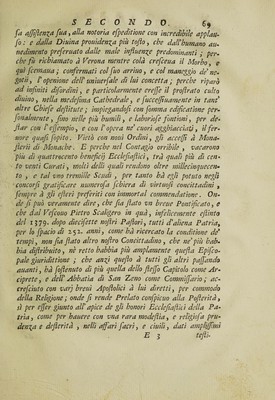 SECONDO. 69
sa assistenza sua, alla notoria espeditione con incredibile applau-
so: e dalla Divina providenza più tosto, che dall'humano au-
uedimento preseruato dalle male influenze predominanti; per-
che fù richiamato à Verona mentre colà cresceua il Morbo, e
quì scemaua; confermati col suo arriuo, e col maneggio de' ne-
gotij, l'openione dell'uniuersale di lui concetta; perche riparò
ad infiniti disordini, e particolarmente eresse il prostrato culto
diuino, nella medesima Cathedrale, e successiuamente in tant'
altre Chiese destitute; impiegandosi con somma edificatione per-
sonalmente, sino nelle più humili, e laboriose fontioni, per de-
star con l'essempio, e con l'opera ne' cuori agghiacciati, il fer-
uore quasi sopito. Vietò con noui Ordini, gli accessi à Mona-
sterij di Monache. E perche nel Contagio orribile, vacarono
più di quattrocento beneficij Ecclesiastici, trà quali più di cen-
to venti Curati, molti delli quali rendono oltre millecinquecen-
to, e tal vno tremille Scudi, per tanto hà egli potuto negli
concorsi gratificare numerosa schiera di virtuosi concittadini,
sempre à gli esteri preferiti con immortal commendatione. On-
de si può veramente dire, che sia stato vn breue Pontificato, e
che dal Vescouo Pietro Scaligero in quà, infelicemente estinto
del 1379. dopo diecisette nostri Pastori, tutti d'aliena Patria,
per lo spacio di 252. anni, come hà ricercato la conditione de'
tempi, non sia stato altro nostro Concittadino, che ne' più hab-
bia distribuito, nè retto habbia più amplamente questa Episco-
pale giuridittione; che anzi questo à tutti gli altri passando
auanti, hà sostenuto di più quella dello stesso Capitolo come Ar-
ciprete, e dell'Abbatia di San Zeno come Commissario; ac-
cresciuto con varj breui Apostolici à lui diretti, per commodo
della Religione; onde si rende Prelato conspicuo alla Posterità,
sì per esser giunto all'apice de gli honori Ecclesiastici della Pa-
tria, come per hauere con una rara modestia, e religiosa pru-
denza e desterità, nelli affari sacri, e ciuili, dati amplissimi
E 3 testi-